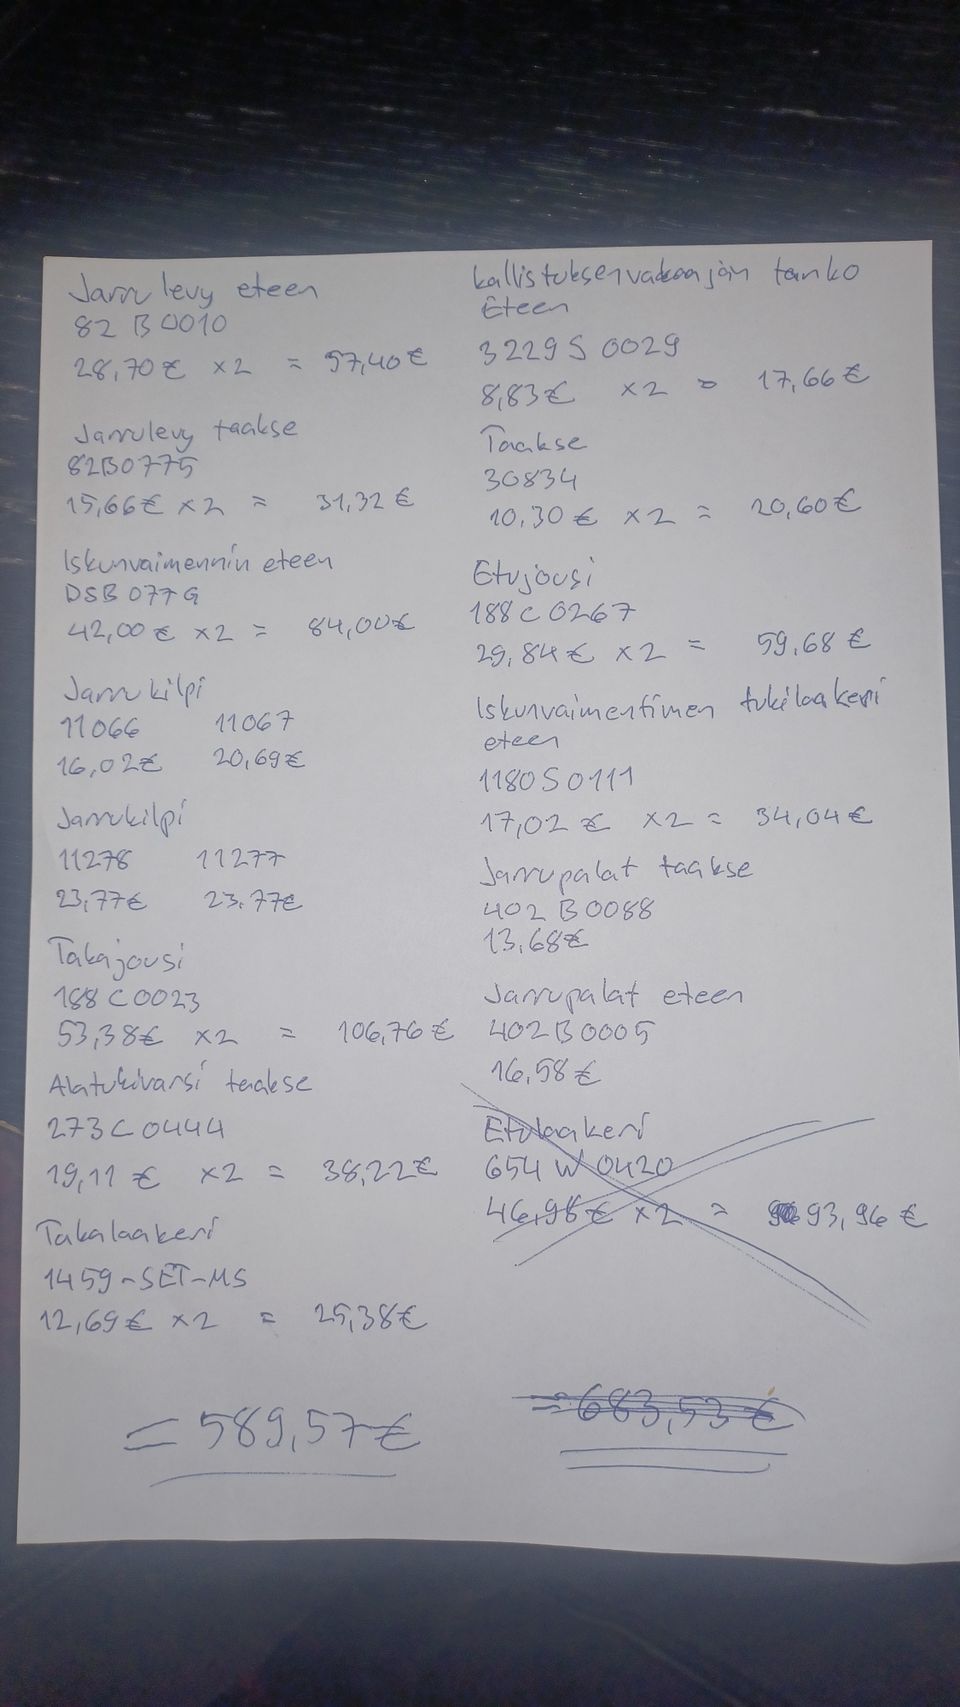 Jarrulevy eteen
82 B 0010
28,70 € x2 = 57,40 €
Jarrulevy taakse
82B0775
15,66 € x2 = 31,32 €
Iskunvaimennin eteen
DSB077G
42,00 € x2 = 84,00 €
Jarrukilpi
11066 11067
16,02 € 20,69 €
Jarrukilpi
11278 11277
23,77 € 23,77 €
Takajousi
188C0023
53,38 € x2 = 106,76 €
Alatukivarsi taakse
273C0444
19,11 € x2 = 38,22 €
Takalaakeri
1459-SET-MS
12,69 € x2 = 25,38 €
= 589,57 €
kallistuksenvakaajan tanko
Eteen
3229S0029
8,83 € x2 = 17,66 €
Taakse
30834
10,30 € x2 = 20,60 €
Etujousi
188C0267
29,84 € x2 = 59,68 €
Iskunvaimentimen tukilaakeri
eteen
1180S0111
17,02 € x2 = 34,04 €
Jarrupalat taakse
402B0088
13,68 €
Jarrupalat eteen
402B0005
16,58 €
Etulaakeri
654W0420
46,98 € x2 = 93,96 €
= 683,53 €